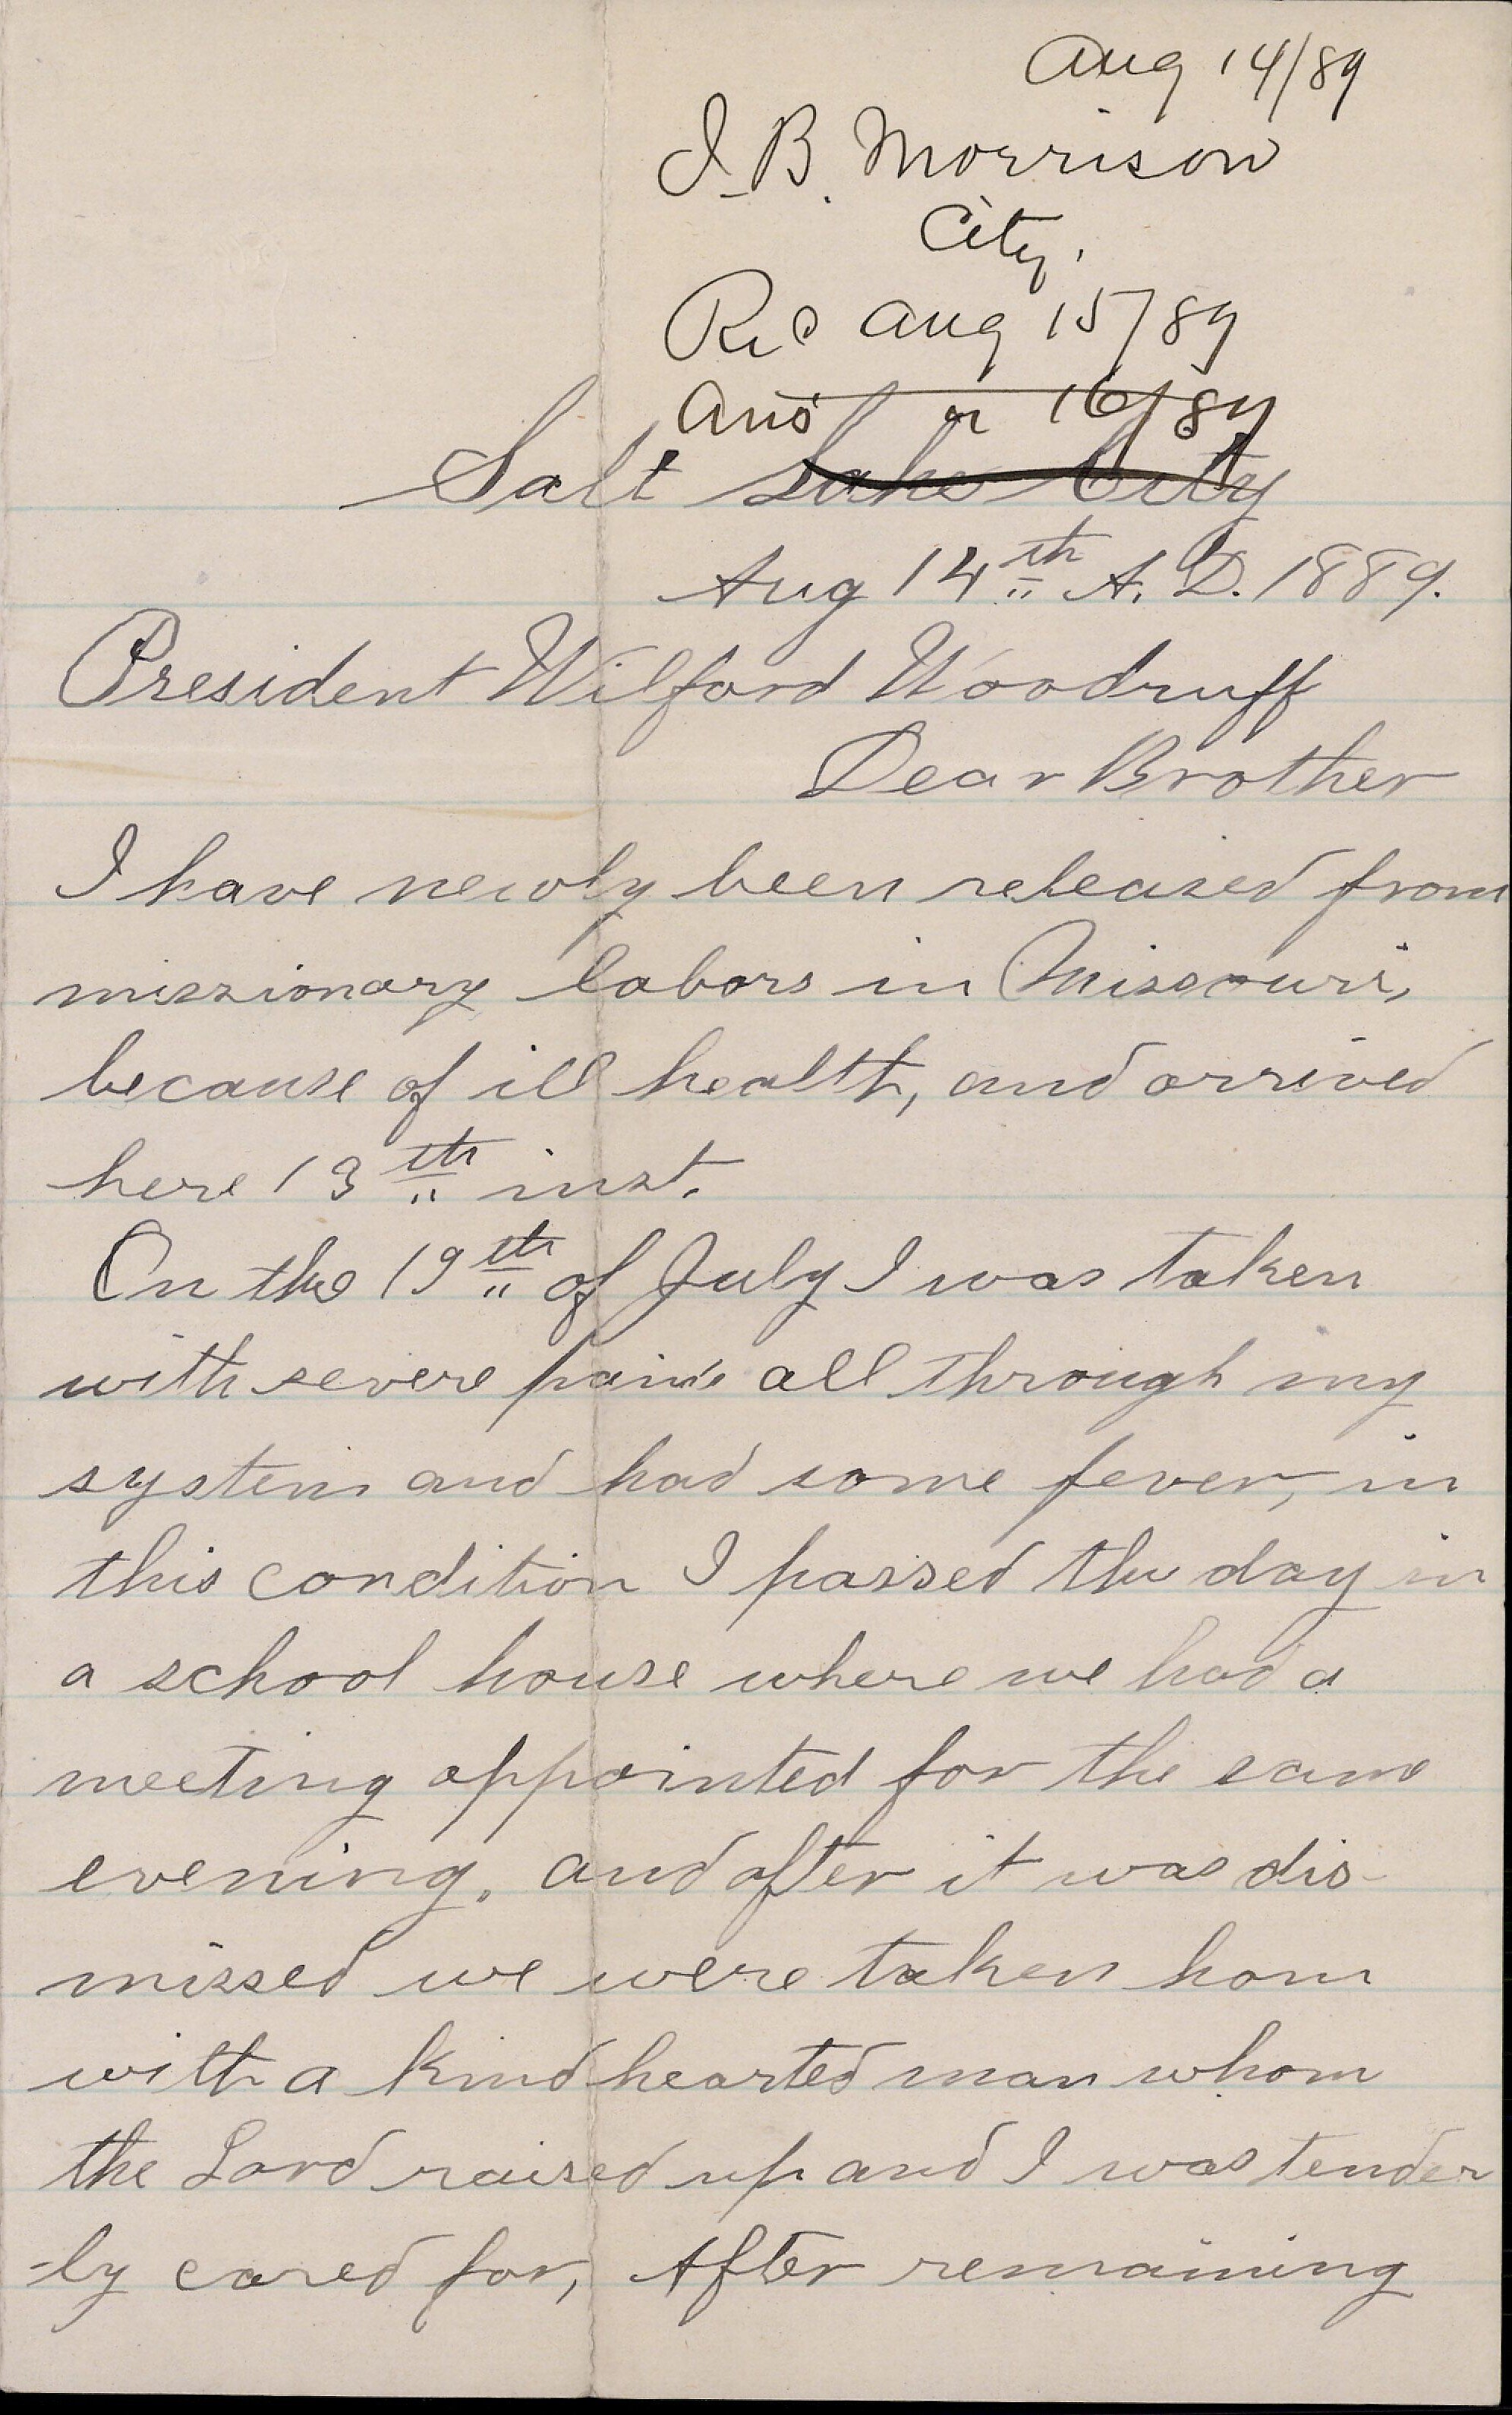 Aug 14/89
J. B. Morrison
City.
Rec Aug 15/89
Ans " 16/89
Salt Lake City
Aug 14th A. D. 1889.
President Wilford Woodruff
Dear Brother
I have newly been released from
missionary labors in Missouri,
because of ill health, and arrived
here 13th inst.
On the 19th of July I was taken
with severe pains all through my
system and had some fever, in
this condition I passed the day in
a school house where we had a
meeting appointed for the same
evening. and after it was dis-
missed we were taken hom
with a kind hearted man whom
the Lord raised up and I was tender
-ly cared for, After remaining